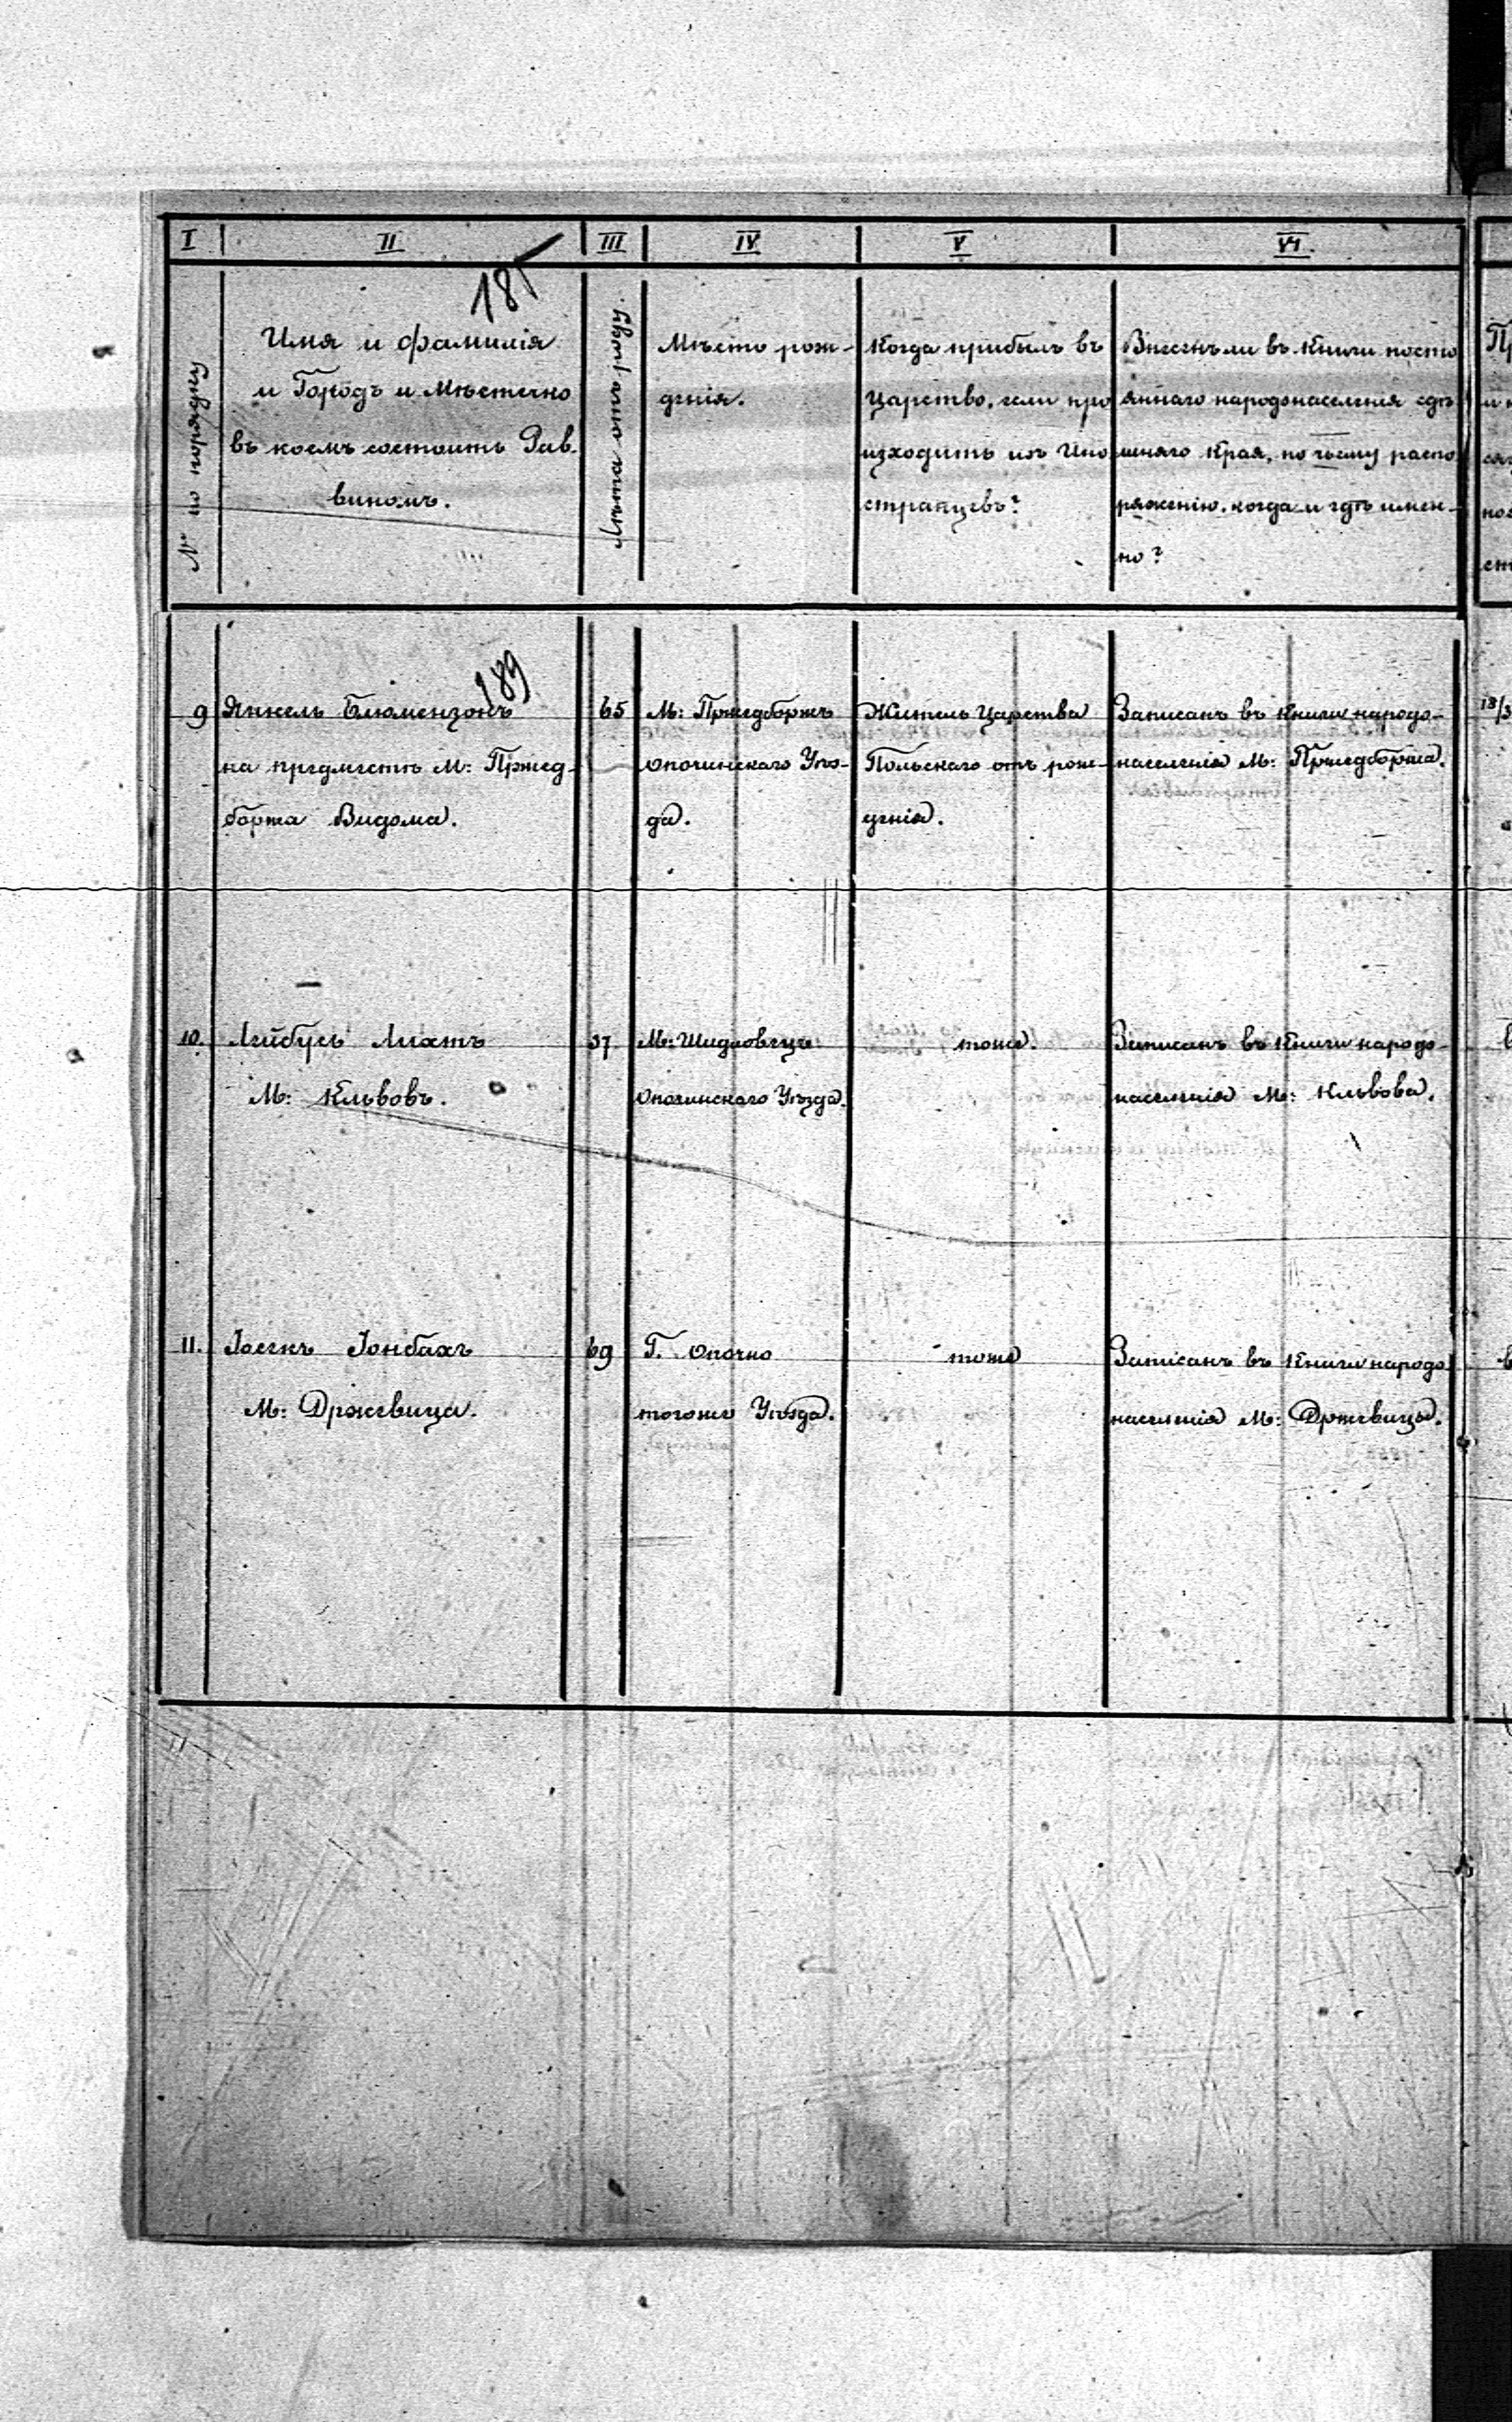 I II III IV V VI
18
№ по порядку
Имя и фамилія
и Городъ и Мѣстечко
въ коемъ состоитъ Рав-
виномъ.
Лѣта отъ роду.
Мѣсто рож-
денія.
Когда прибылъ въ
Царство, если про
изходитъ изъ Ино
странцевъ?
Внесенъ ли въ Книги посто
яннаго народонаселенія здѣ
шняго Края, по чьему распо
ряженію, когда и гдѣ имен-
но?
189
9
Янкель Блюмензонъ
на предмѣстѣ М: Пржед-
боржа Видома.
65
М: Пржедборжъ
Опочинскаго Уѣз-
да.
Житель Царства
Польскаго отъ рож-
денія.
Записанъ въ Книги народо-
населенія М: Пржедборжа.
10.
Лейбусь Лихтъ
М: Кльвовъ.
37
М: Шидловецъ
Опочинскаго Уѣзда.
тоже.
Записанъ въ Книги народо-
населенія М: Кльвова.
11.
Іосекъ Іонбахъ
М: Држевица.
69
Г. Опочно
тогоже Уѣзда.
тоже
Записанъ въ Книги народо
населенія М: Држевицы.